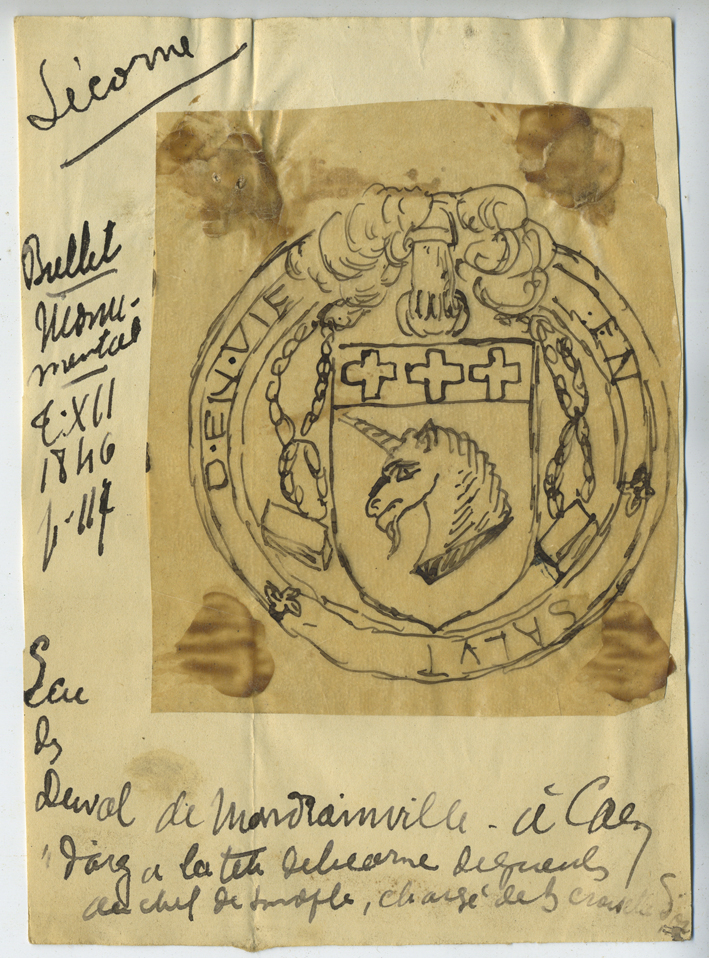 Licorne
Bullet
Monu-
mental
T. XII
1846
p. 117
D·EN·VIE
·EN
SALVT
Ecu
de
Duval de Mondrainville - à Caen
"d'arg a la tete de licorne de gueules
au chef de sinople, chargé de 3 croisettes d'or